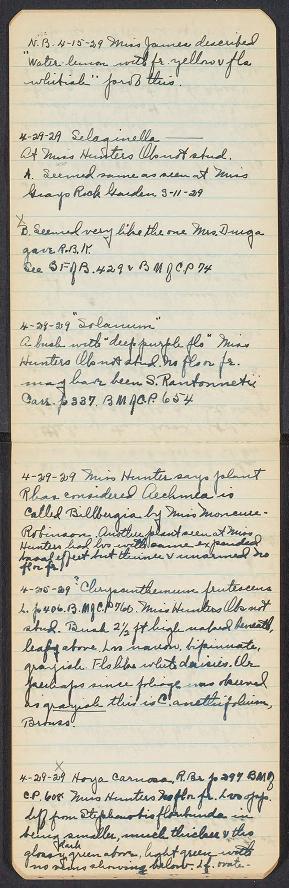 N.B. 4-15-29 Miss James described
"Water lemon with fr. yellow & fls
whitish" for this.
4-29-29 Selaginella
At Miss Hunters Obs not stud.
A. Seemed same as seen at Miss
Grays Rock Garden 3-11-29
X
B. Seemed very like the one Mrs. Dunga
gave R.B.K.
See SF of B. 429 & BM of CP 74
4-29-29 "Solanum"
A bush with "deep purple fls" Miss
Hunters Obs not stud. No fl or fr.
may have been S. Rantonnetii
Carr. p 337. BM of CP. 654
4-29-29 Miss Hunter says plant
R has considered Aechmea is
called Billbergia by Miss Moncure-
Robinson. Another plant seen at Miss
Hunter had lvs with same expanded
basal effect but thinner & unarmed No
fl or fr.
4-25-29 "Chrysanthemum frutescens
L. p 406. B.M of CP 760. Miss Hunters Obs not
stud. Bush 2½ ft high naked beneath,
leafy above. Lvs narrow, bipinnate,
grayish. Fls like white daisies. Or
perhaps since foliage was observed
as grayish this is C. anethifolium,
Brouss.
X
4-29-29 Hoya carnosa, R.Br p 297 BM of
CP. 608. Miss Hunters No fl or fr. Lvs opp.
diff from Stephanotis floribunda in
being smaller, much thicker & this
glossy dark green above, light green with
no veins showing below. Lf. ovate-